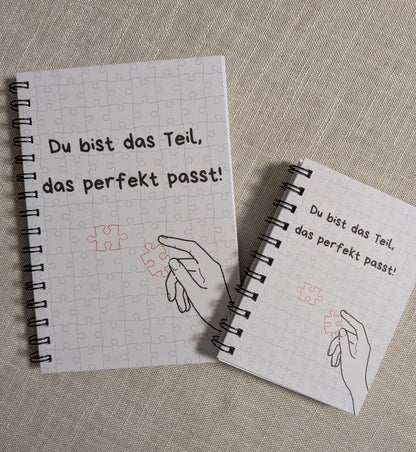 Du bist das Teil,
das perfekt passt!
Du bist das Teil,
das perfekt passt!